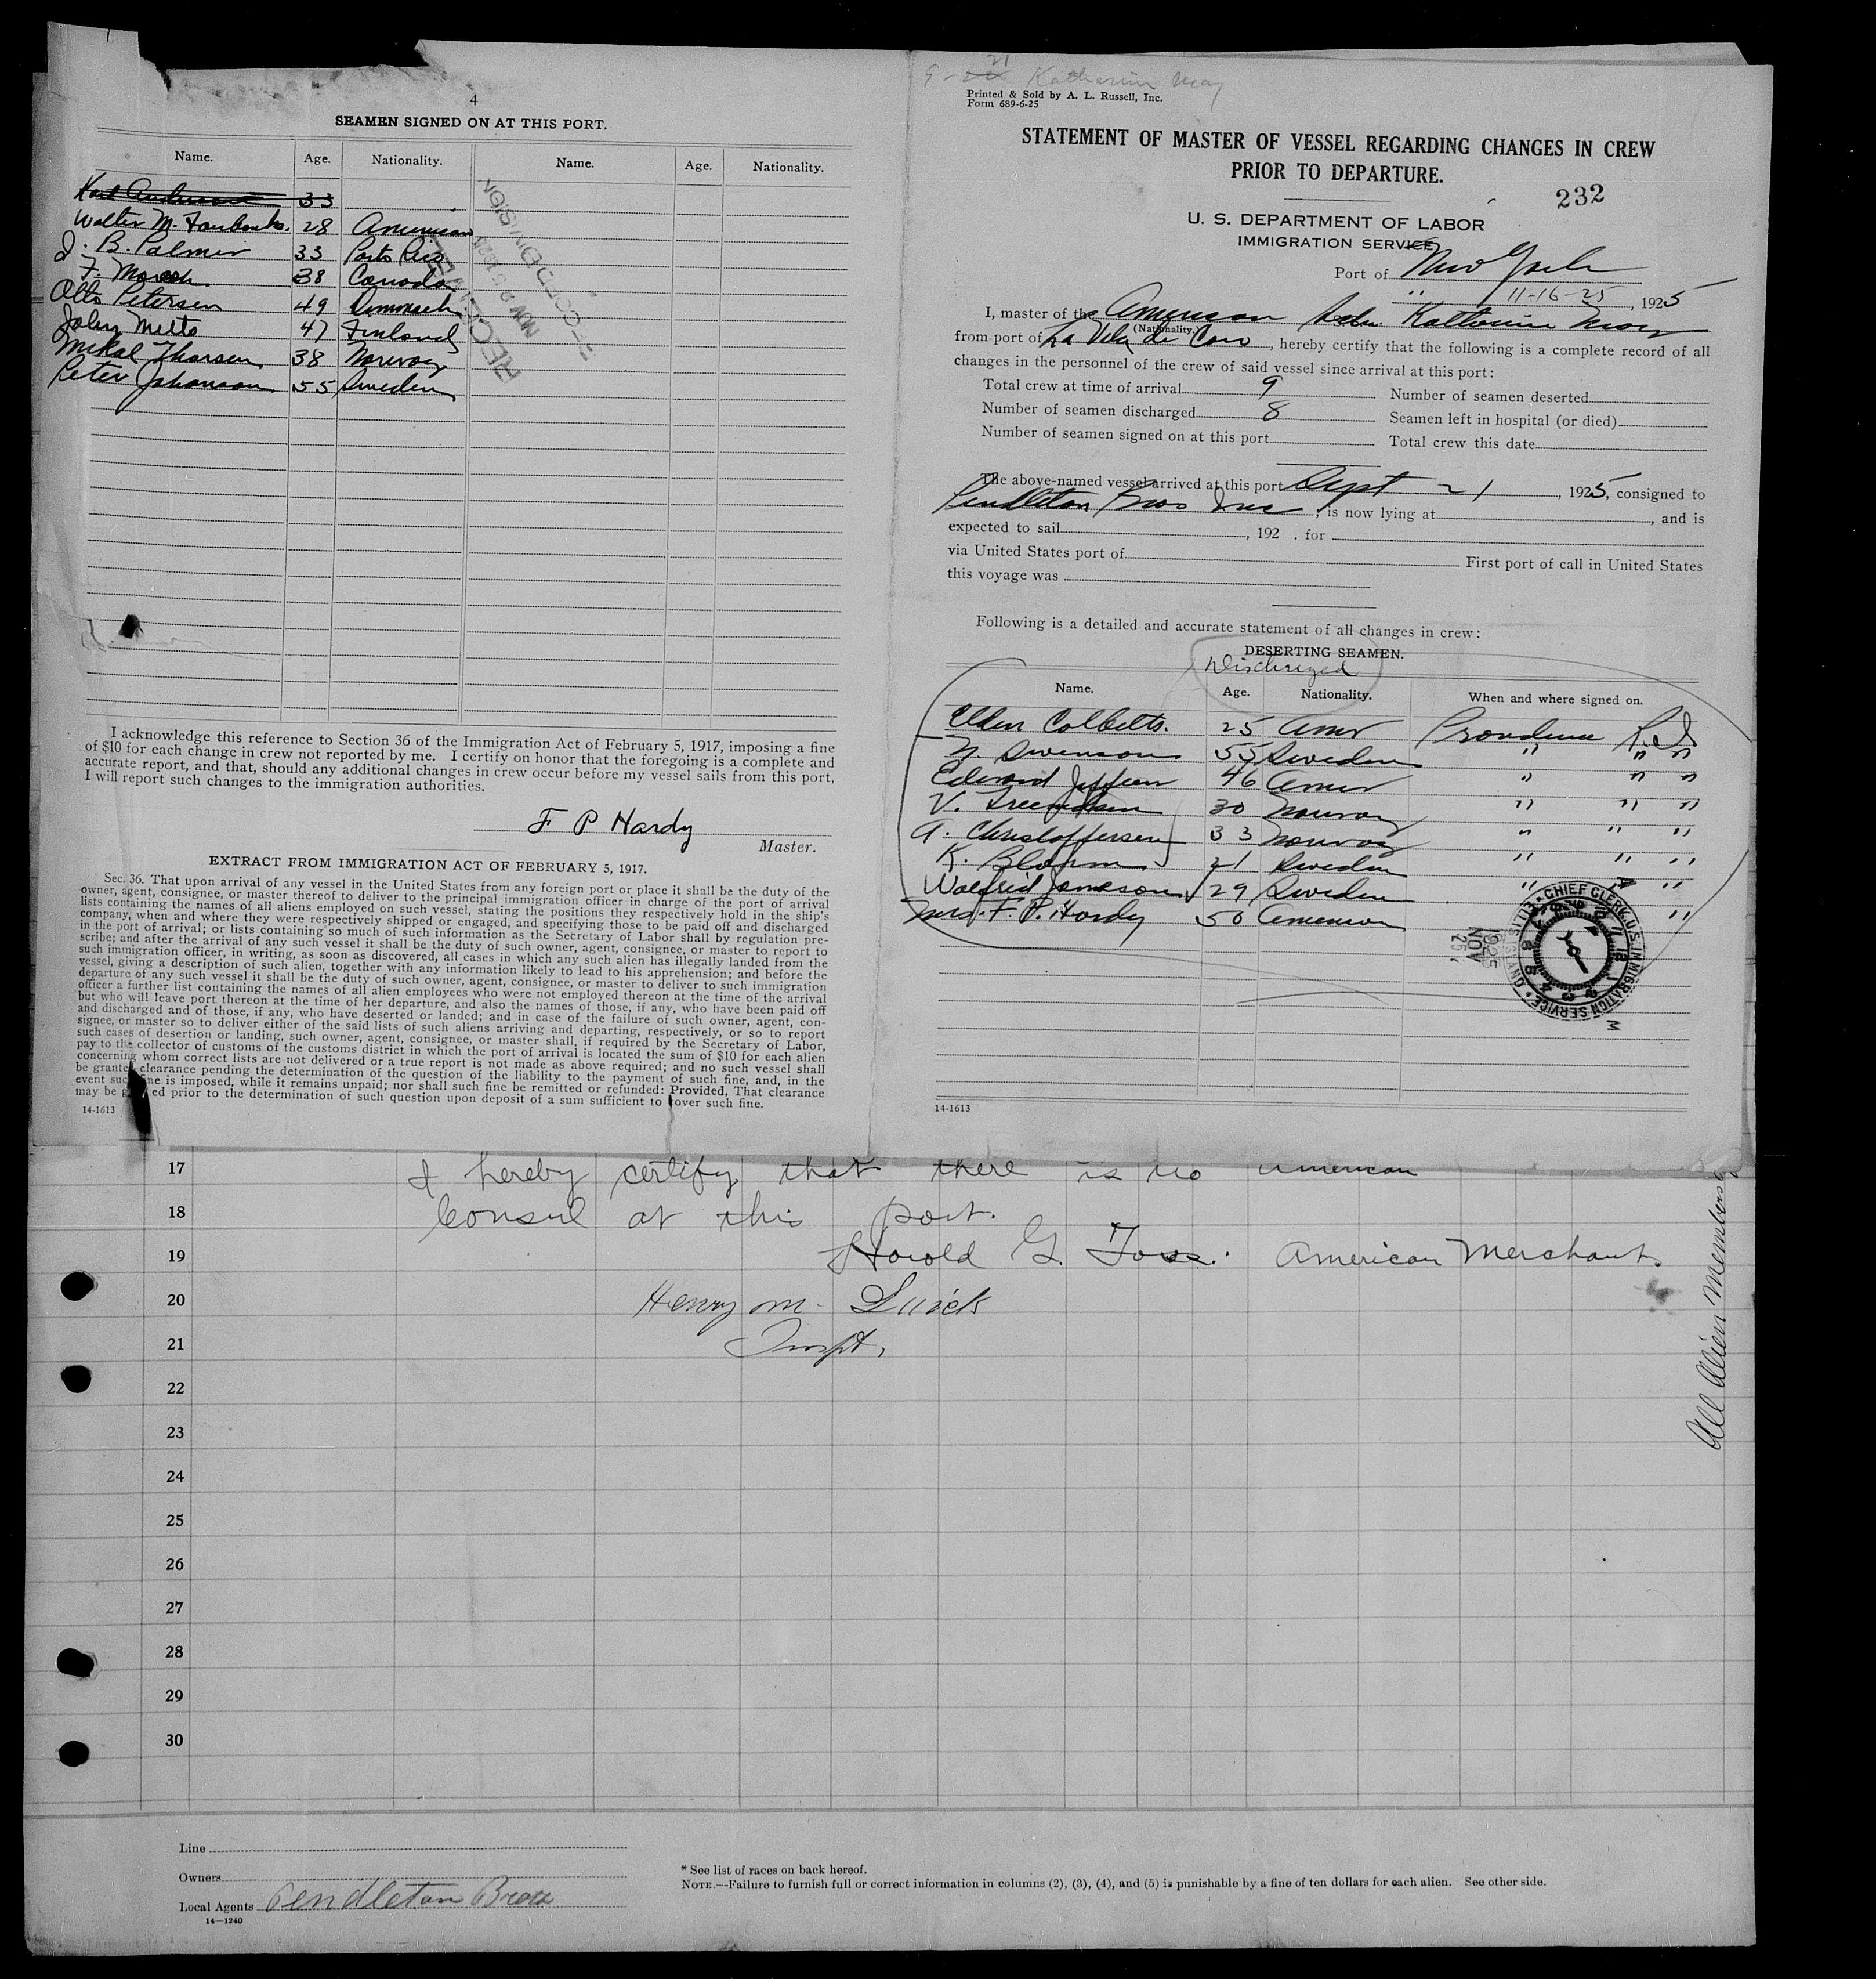 4
SEAMEN SIGNED ON AT THIS PORT.
Name. Age. Nationality. Name. Age. Nationality.
Karl Anderson 33
Walter M. Fairbanks. 28 American
J. B. Palmer 33 Porto Rico
F. 38 Canada
Otto Petersen 49 Denmark
John 47 Finland
Mikal Thorsen 38 Norway
Peter Johanson 55 Sweden
RECEIVED
NOV 25 1925
RECORD DIVISION
I acknowledge this reference to Section 36 of the Immigration Act of February 5, 1917, imposing a fine
of $10 for each change in crew not reported by me. I certify on honor that the foregoing is a complete and
accurate report, and that, should any additional changes in crew occur before my vessel sails from this port,
I will report such changes to the immigration authorities.
F P Hardy
Master.
EXTRACT FROM IMMIGRATION ACT OF FEBRUARY 5, 1917.
Sec. 36. That upon arrival of any vessel in the United States from any foreign port or place it shall be the duty of the
owner, agent, consignee, or master thereof to deliver to the principal immigration officer in charge of the port of arrival
lists containing the names of all aliens employed on such vessel, stating the positions they respectively hold in the ship's
company, when and where they were respectively shipped or engaged, and specifying those to be paid off and discharged
in the port of arrival; or lists containing so much of such information as the Secretary of Labor shall by regulation pre-
scribe; and after the arrival of any such vessel it shall be the duty of such owner, agent, consignee, or master to report to
such immigration officer, in writing, as soon as discovered, all cases in which any such alien has illegally landed from the
vessel, giving a description of such alien, together with any information likely to lead to his apprehension; and before the
departure of any such vessel it shall be the duty of such owner, agent, consignee, or master to deliver to such immigration
officer a further list containing the names of all alien employees who were not employed thereon at the time of the arrival
but who will leave port thereon at the time of her departure, and also the names of those, if any, who have been paid off
and discharged and of those, if any, who have deserted or landed; and in case of the failure of such owner, agent, con-
signee, or master so to deliver either of the said lists of such aliens arriving and departing, respectively, or so to report
such cases of desertion or landing, such owner, agent, consignee, or master shall, if required by the Secretary of Labor,
pay to the collector of customs of the customs district in which the port of arrival is located the sum of $10 for each alien
concerning whom correct lists are not delivered or a true report is not made as above required; and no such vessel shall
be granted clearance pending the determination of the question of the liability to the payment of such fine, and, in the
event such fine is imposed, while it remains unpaid; nor shall such fine be remitted or refunded: Provided, That clearance
may be g ed prior to the determination of such question upon deposit of a sum sufficient to cover such fine.
14-1613
9- 21 Katherine May
Printed & Sold by A. L. Russell, Inc.
Form 689-6-25
STATEMENT OF MASTER OF VESSEL REGARDING CHANGES IN CREW
PRIOR TO DEPARTURE.
232
U. S. DEPARTMENT OF LABOR
IMMIGRATION SERVICE
Port of New York
" 11-16-25, 1925
I, master of the American Schr Katherine May
(Nationality.)
from port of La Vela de Coro, hereby certify that the following is a complete record of all
changes in the personnel of the crew of said vessel since arrival at this port:
Total crew at time of arrival 9 Number of seamen deserted
Number of seamen discharged 8 Seamen left in hospital (or died)
Number of seamen signed on at this port Total crew this date
The above-named vessel arrived at this port Sept 21, 1925, consigned to
Pendleton Bros Inc, is now lying at , and is
expected to sail , 192 . for
via United States port of First port of call in United States
this voyage was
Following is a detailed and accurate statement of all changes in crew:
DESERTING SEAMEN.
Discharged
Name. Age. Nationality. When and where signed on.
Elden Colbetts. 25 Amer Providence R.I
N Swenson 55 Sweden " " "
Edward 46 Amer " " "
V. 30 Norway " " "
A. Christoffersen 33 Norway " " "
K. Blohm 21 Sweden " " "
Walfrid Jameson 29 Sweden " " "
Mrs. F. P. Hardy 50 American "
CHIEF CLERK, U.S. IMMIGRATION SERVICE • ELLIS ISLAND
NOV 25
1925
14-1613
17 I hereby certify that there is no American
18 Consul at this port.
19 Harold G. Foss. American Merchant.
20 Henry M. Luick
21 Inspt.
22
23
24
25
26
27
28
29
30
All Alien Members
Line
Owners
Local Agents Pendleton Bros
14—1240
* See list of races on back hereof.
NOTE.—Failure to furnish full or correct information in columns (2), (3), (4), and (5) is punishable by a fine of ten dollars for each alien. See other side.